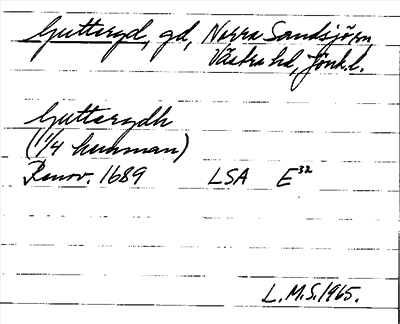 Gutteryd, gd, Norra Sandsjö sn
Västra hd, Jönk.l.
Gutterydh
(1 1/4 hemman)
Renov. 1689 LSA E32
L.M.S. 1965.